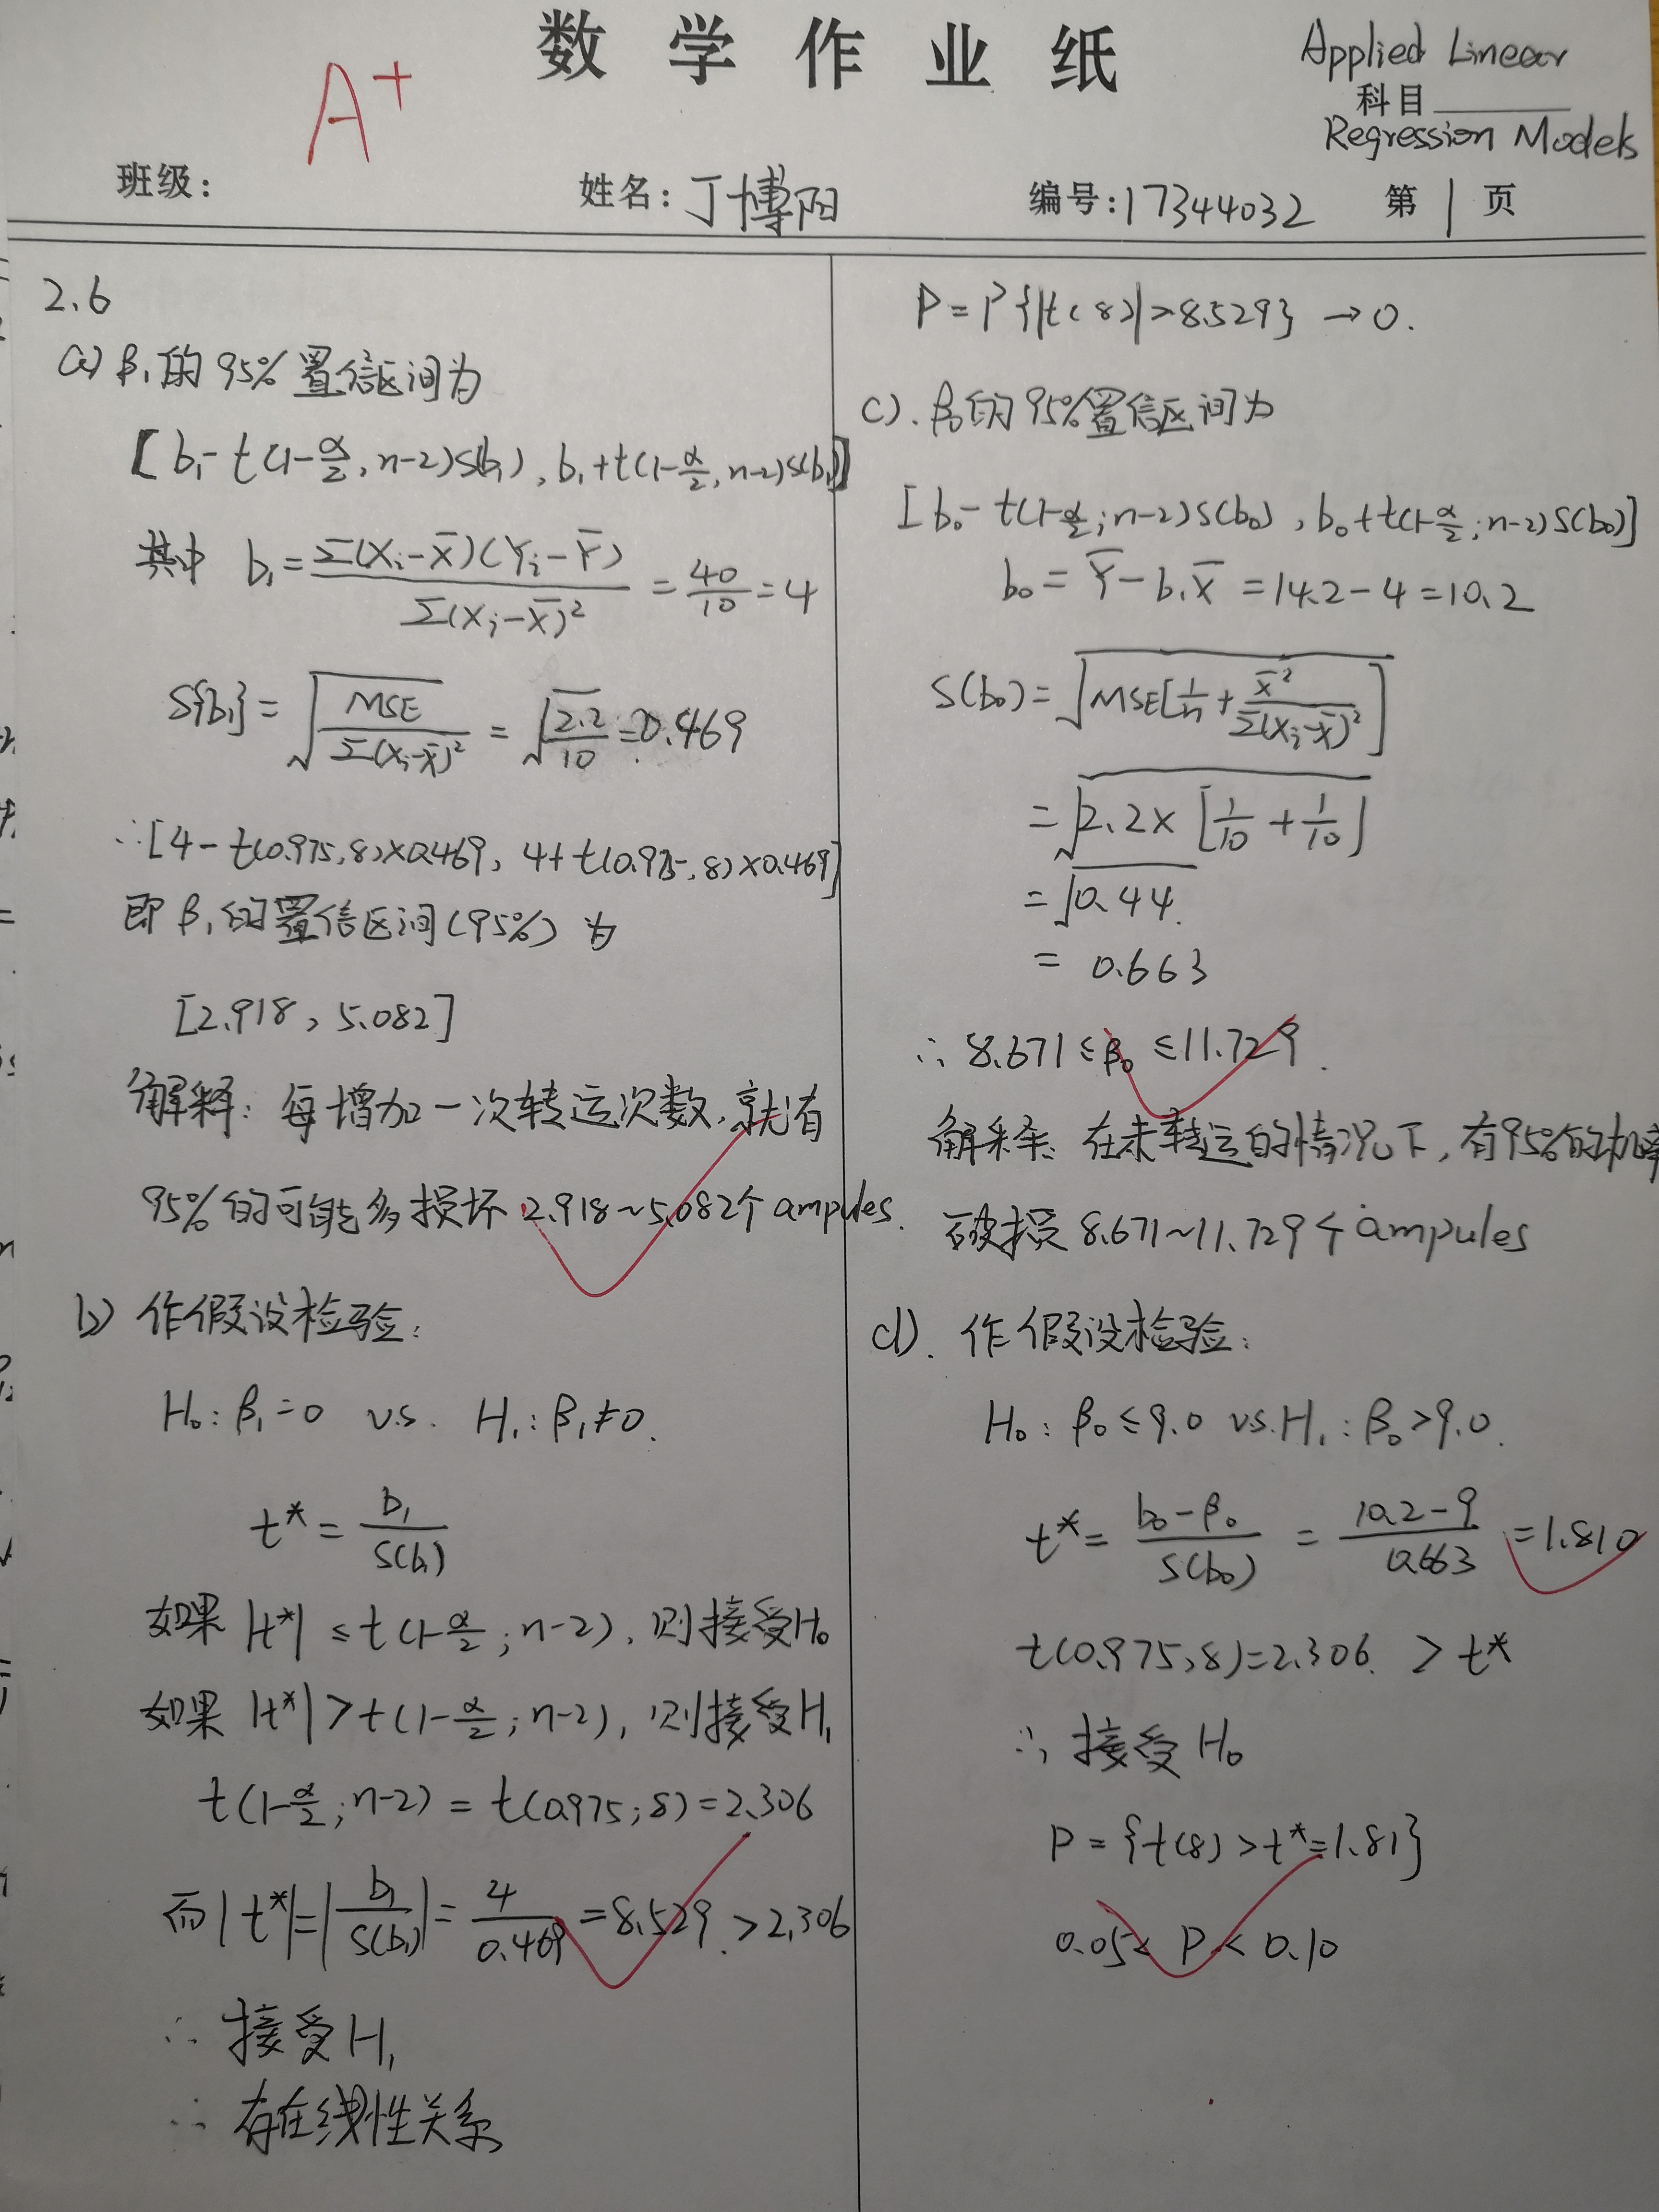 数学作业纸
Applied Linear
科目
Regression Models
A+
班级: 姓名: 丁博阳 编号: 17344032 第 1 页
2.6
a) β₁的 95% 置信区间为
[b₁-t(1-α/2, n-2)s(b₁), b₁+t(1-α/2, n-2)s(b₁)]
其中 b₁ = Σ(Xᵢ-X̄)(Yᵢ-Ȳ) / Σ(Xᵢ-X̄)² = 40/10 = 4
s{b₁} = √(MSE / Σ(Xᵢ-X̄)²) = √(2.2/10) = 0.469
∴ [4-t(0.975, 8)×0.469, 4+t(0.975, 8)×0.469]
即 β₁的置信区间(95%) 为
[2.918, 5.082]
解释: 每增加一次转运次数, 就有
95%的可能多损坏 2.918~5.082个 ampules.
b) 作假设检验:
H₀: β₁=0 v.s. H₁: β₁≠0.
t* = b₁/s(b₁)
如果 |t*| ≤ t(1-α/2; n-2), 则接受H₀
如果 |t*| > t(1-α/2; n-2), 则接受H₁
t(1-α/2; n-2) = t(0.975; 8) = 2.306
而 |t*| = |b₁/s(b₁)| = 4/0.469 = 8.529 > 2.306
∴ 接受H₁
∴ 存在线性关系
P = P{|t(8)|>8.529} → 0.
c). β₀的95%置信区间为
[b₀-t(1-α/2; n-2)s(b₀), b₀+t(1-α/2; n-2)s(b₀)]
b₀ = Ȳ-b₁X̄ = 14.2-4 = 10.2
s(b₀) = √(MSE[1/n + X̄²/Σ(Xᵢ-X̄)²])
= √(2.2×[1/10 + 1/10])
= √0.44
= 0.663
∴ 8.671 ≤ β₀ ≤ 11.729.
解释: 在未转运的情况下, 有95%的概率
破损 8.671~11.729个 ampules
d). 作假设检验:
H₀: β₀≤9.0 vs. H₁: β₀>9.0.
t* = (b₀-β₀)/s(b₀) = (10.2-9)/0.663 = 1.810
t(0.975, 8)=2.306. > t*
∴ 接受 H₀
P = {t(8) > t*=1.81}
0.05 < P < 0.10